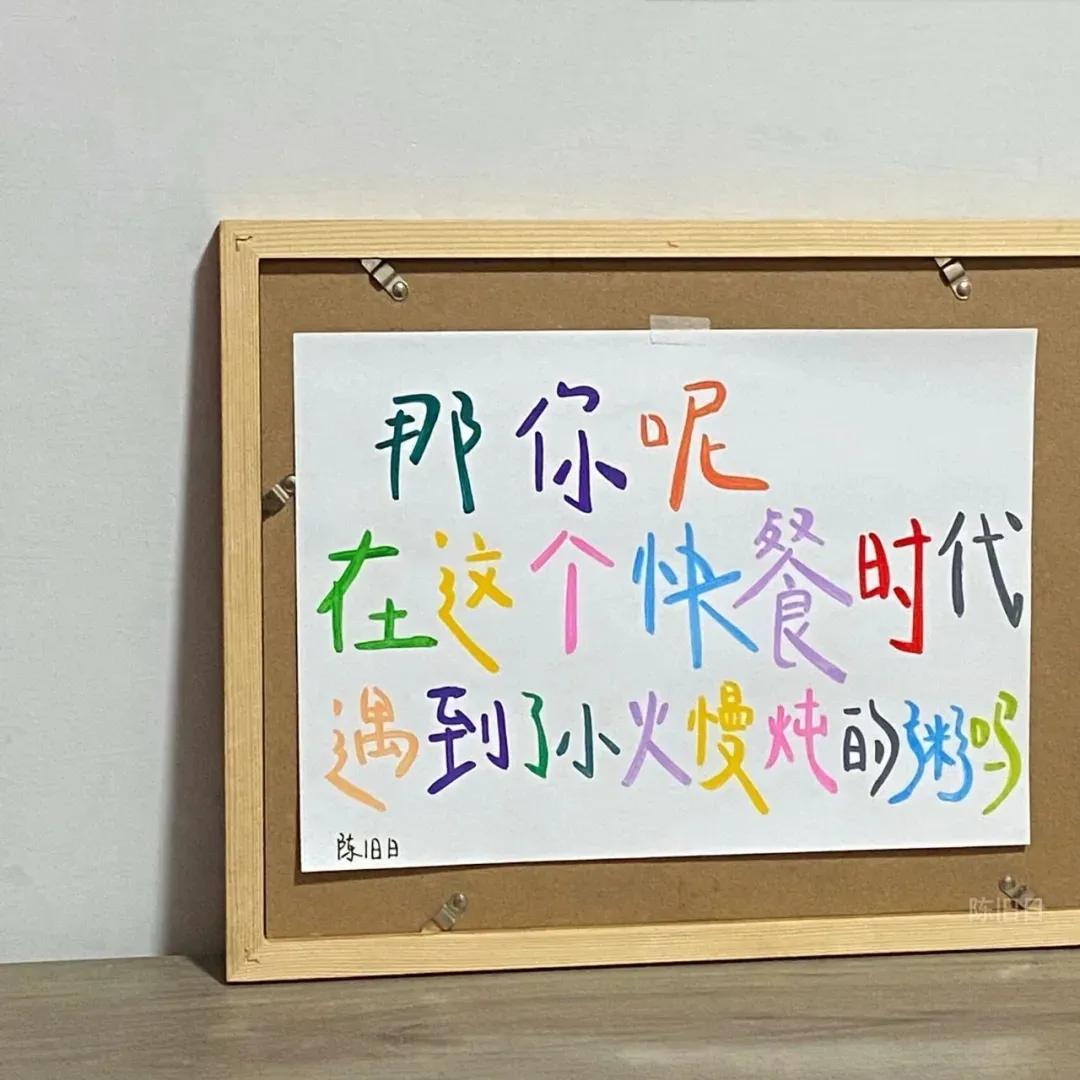 那你呢
在这个快餐时代
遇到了小火慢炖的粥吗
陈旧日
陈旧日